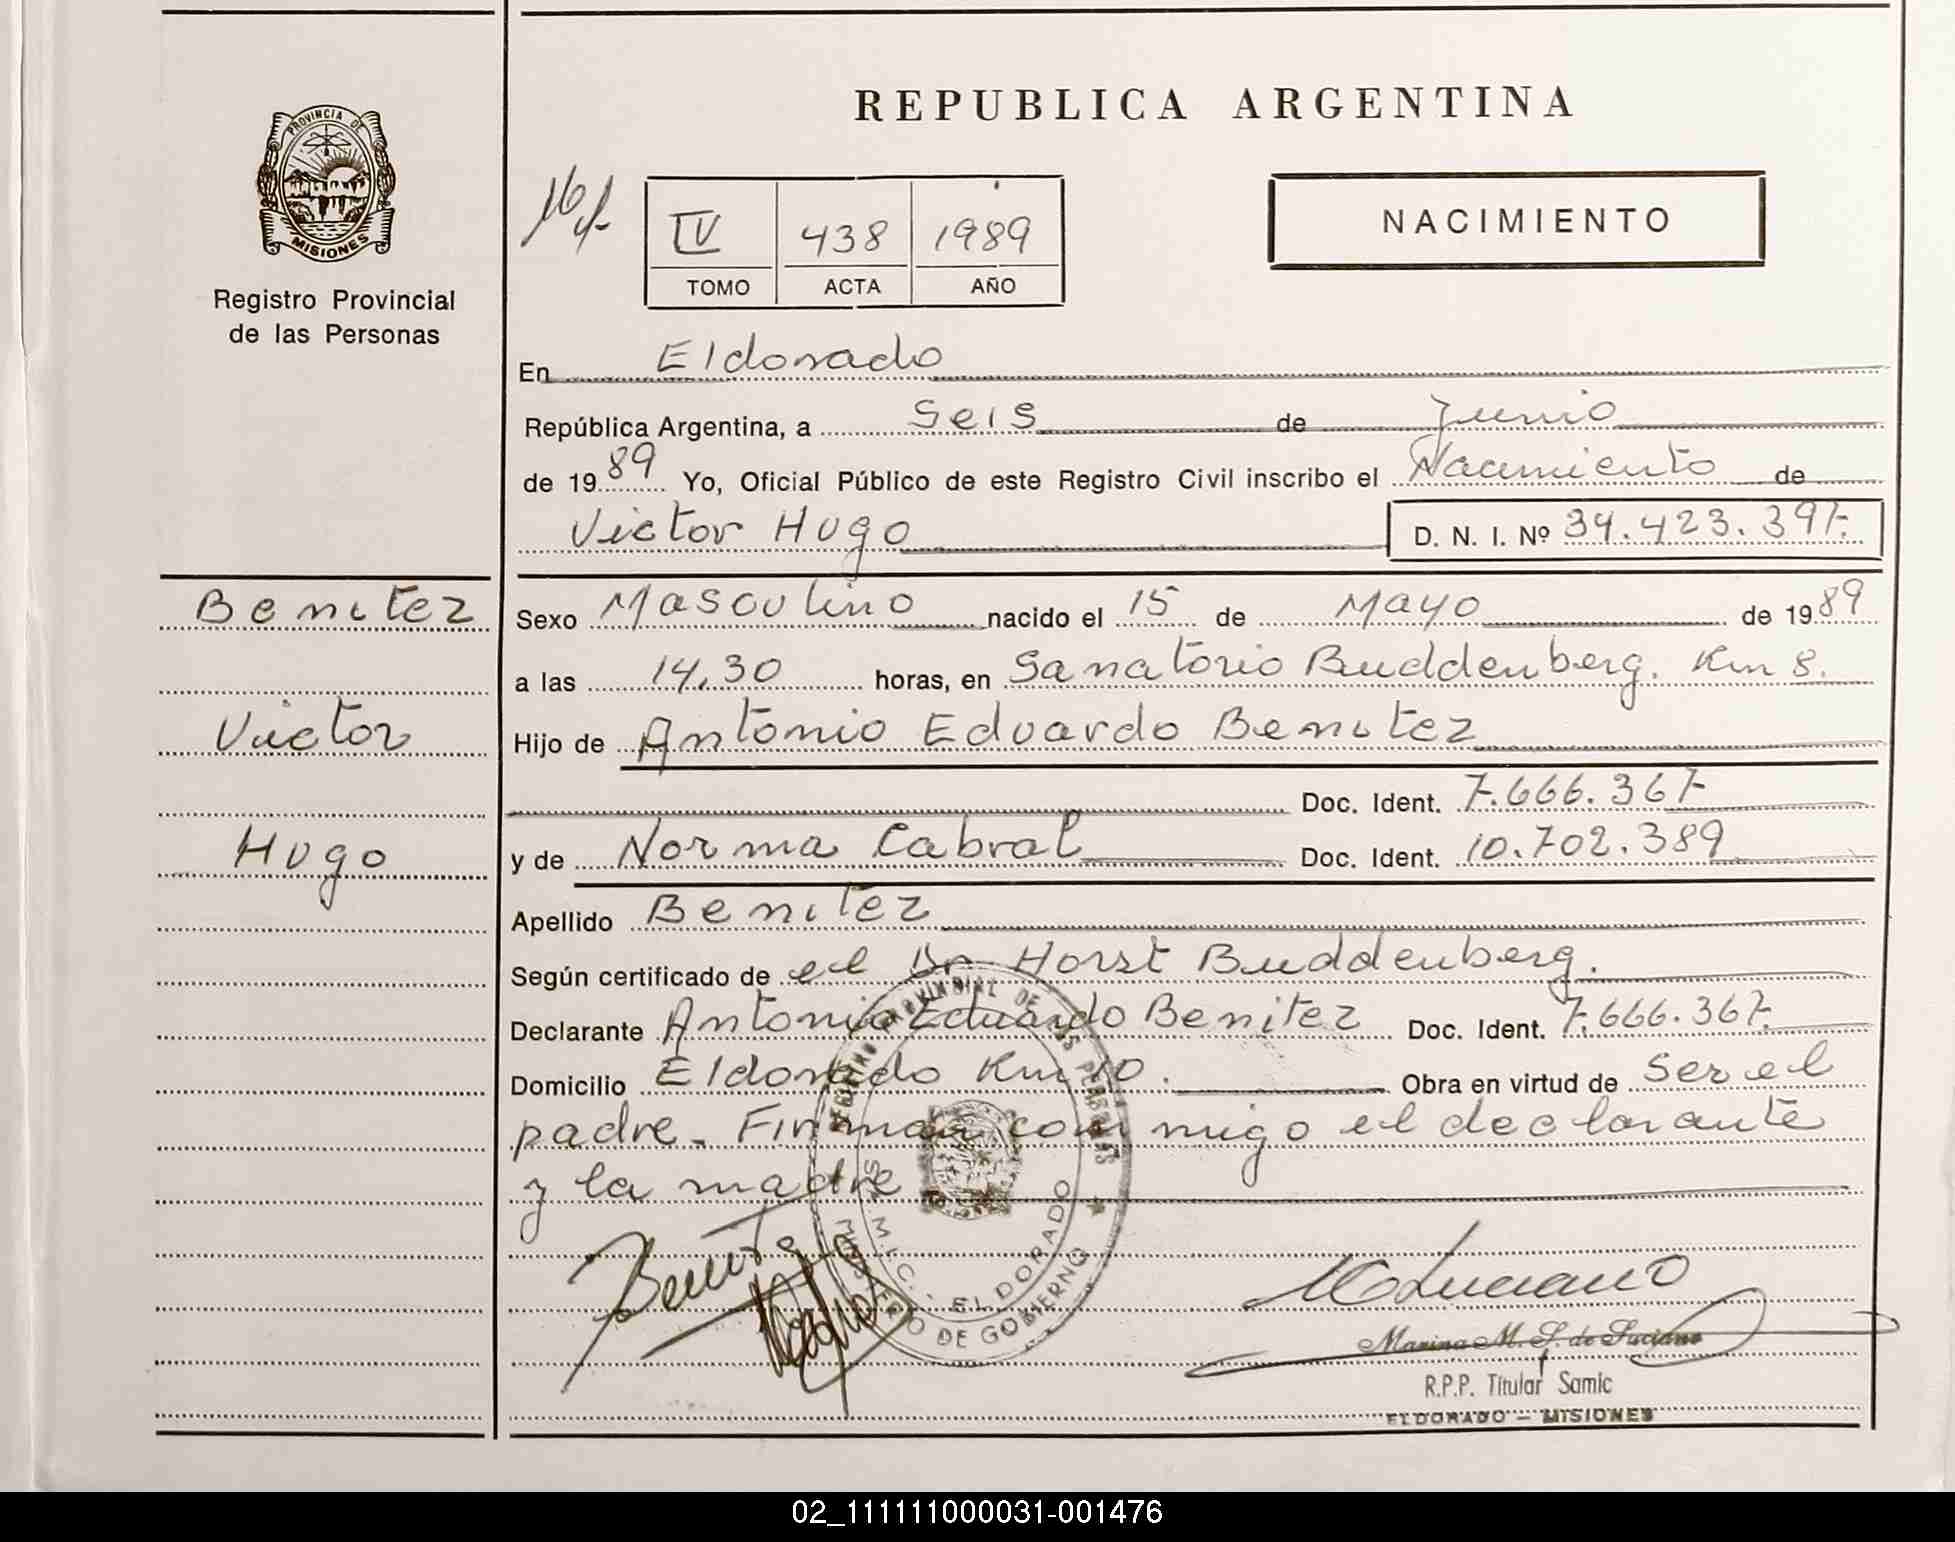 PROVINCIA DE
MISIONES
Registro Provincial
de las Personas
REPUBLICA ARGENTINA
NACIMIENTO
IV 438 1989
TOMO ACTA AÑO
En Eldorado
República Argentina, a Seis de Junio
de 1989 Yo, Oficial Público de este Registro Civil inscribo el Nacimiento de
Victor Hugo D. N. I. Nº 34.423.391-
Benitez
Victor
Hugo
Sexo Masculino nacido el 15 de Mayo de 1989
a las 14,30 horas, en Sanatorio Buddenberg. Km 8.
Hijo de Antonio Eduardo Benitez
Doc. Ident. 7.666.367-
y de Norma Cabral Doc. Ident. 10.702.389
Apellido Benitez
Según certificado de el Dr Horst Buddenberg.
Declarante Antonio Eduardo Benitez Doc. Ident. 7.666.367-
Domicilio Eldorado Km 10. Obra en virtud de ser el
padre. Firman con migo el declarante
y la madre
ELDORADO
DE GOBIERNO
Marina M. S. de Luciano
R.P.P. Titular Samic
ELDORADO - MISIONES
02_111111000031-001476